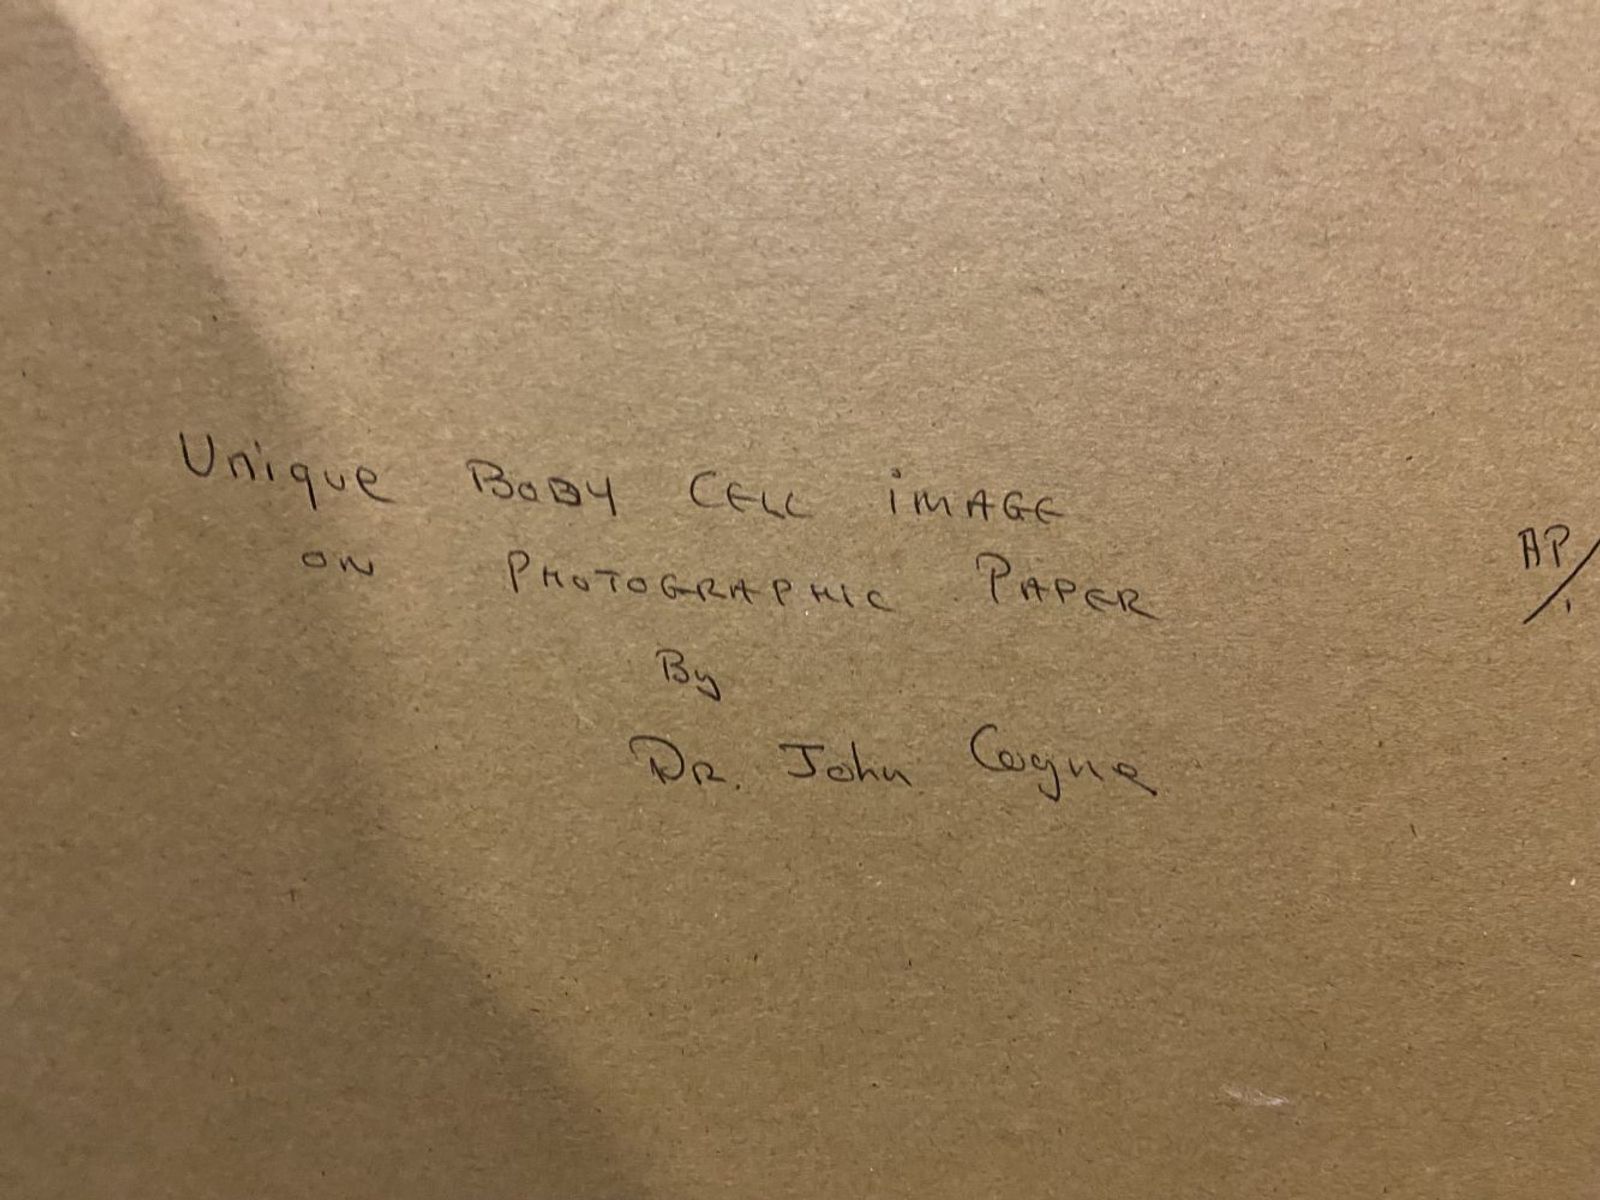 Unique BODY CELL iMAGE
ON PHOTOGRAPHIC PAPER
AP/1
By
DR. John